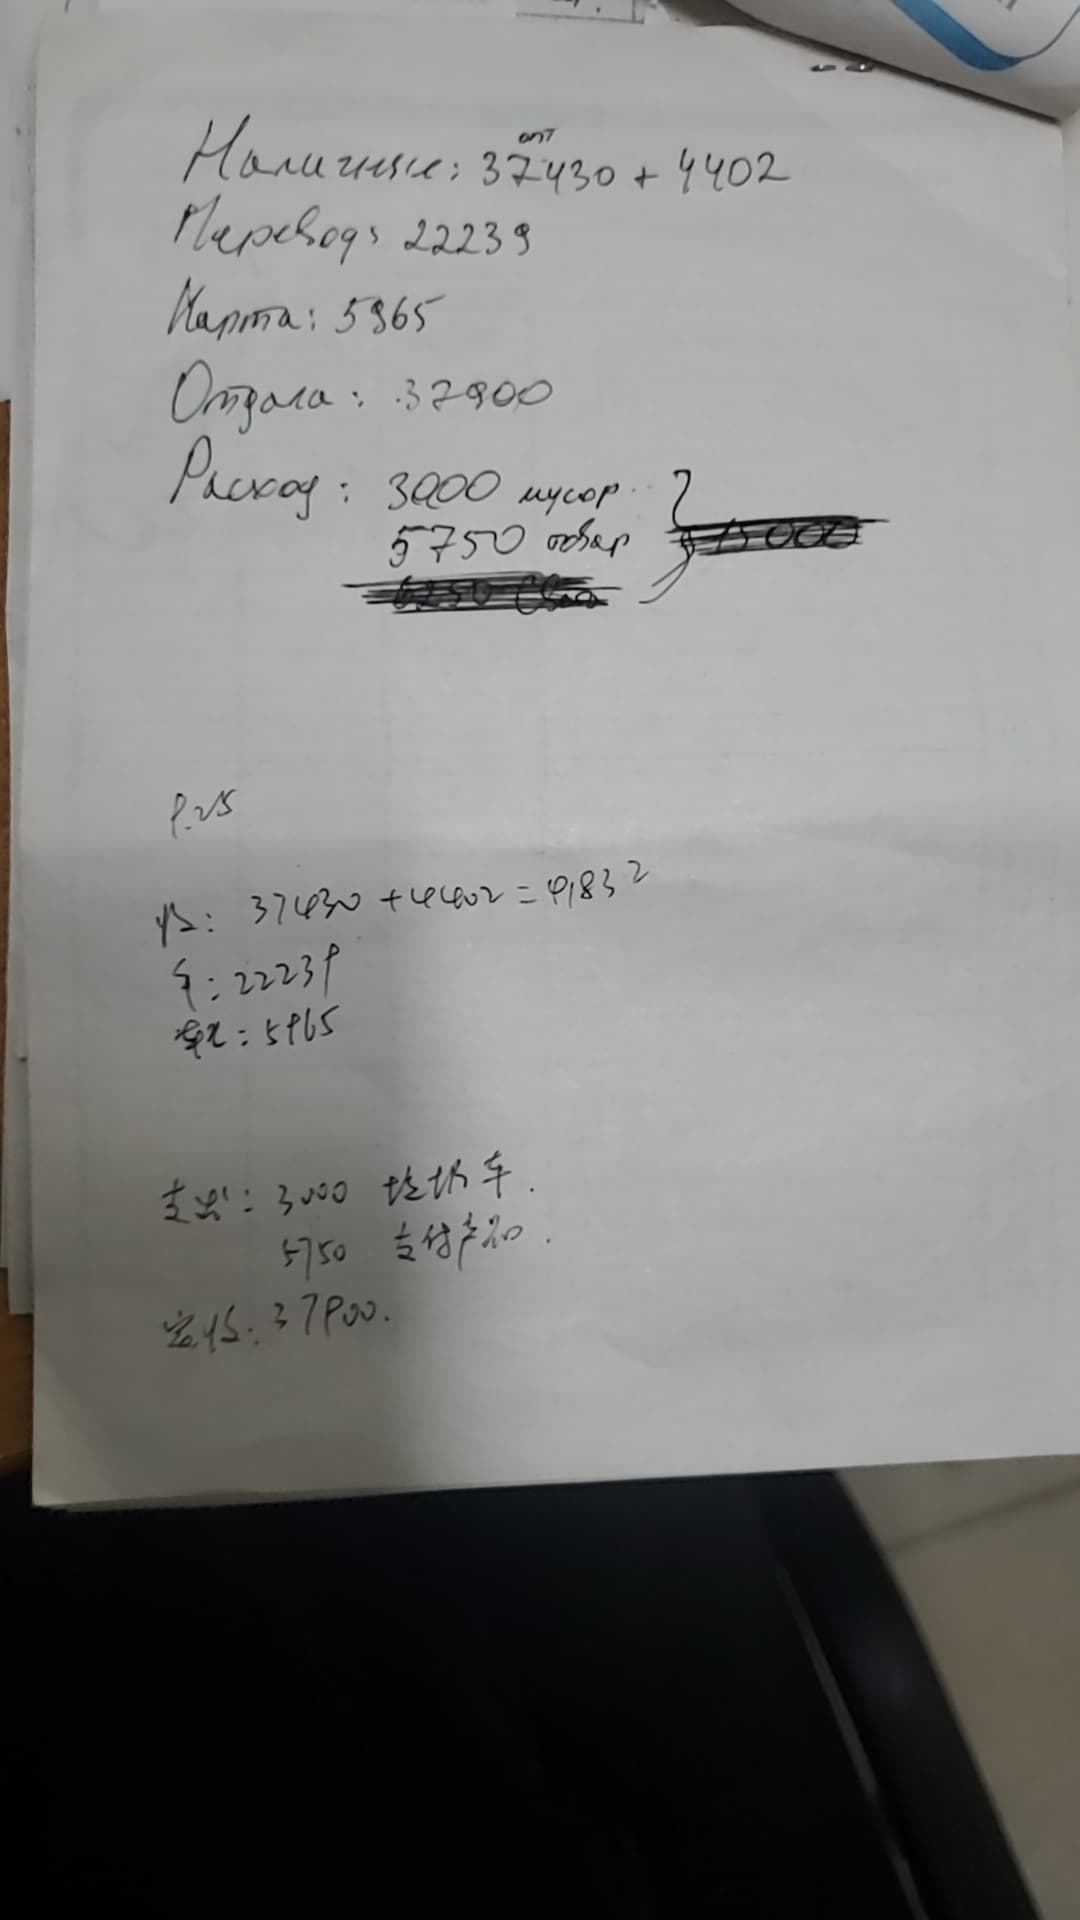 опт
Наличные: 37430 + 4402
Перевод: 22239
Карта: 5965
Отдала: 37900
Расход: 3000 мусор
5750 товар
9.25
收: 37430 + 4402 = 41832
卡: 22239
: 5965
支出: 3000 垃圾车.
5750 支付产品.
实收: 37900.